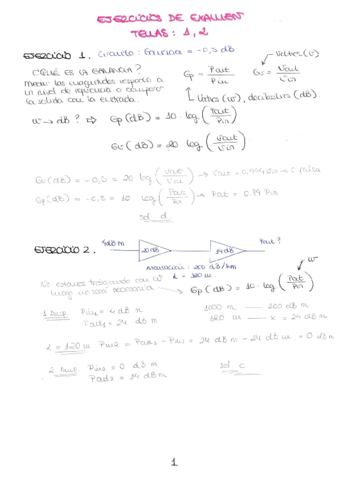 EJERCICIOS DE EXAMEN
TEMAS: 1, 2
EJERCICIO 1. Circuito: Ganancia = -0,5 dB
¿QUÉ ES LA GANANCIA?
Medir las magnitudes respecto a
un nivel de referencia o comparar
la salida con la entrada.
Gp = Pout / Pin
Gv = Vout / Vin
Voltios (v)
Vatios (w), decibelios (dB).
w → dB? ⇒ Gp (dB) = 10 · log (Pout / Pin)
Gv (dB) = 20 log (Vout / Vin)
Gv (dB) = -0,5 = 20 log (Vout / Vin) → Vout = 0,944 Vin → C falsa
Gp (dB) = -0,5 = 10 log (Pout / Pin) → Pout = 0.89 Pin
sol d.
EJERCICIO 2.
dBm
20 dB
24 dB
Pout?
Atenuación: 200 dB/km
L = 120 m.
No estamos trabajando con W
luego no será necesaria
Gp (dB) = 10 · log (Pout / Pin)
w
1 Amp Pin1 = 4 dB m
Pout1 = 24 dB m
1000 m — 200 dB m
120 m — x = 24 dB m
L = 120 m Pin2 = Pout1 - Pin = 24 dB m - 24 dB m = 0 dB m
2 Amp Pin2 = 0 dB m
Pout2 = 24 dB m
sol c
1